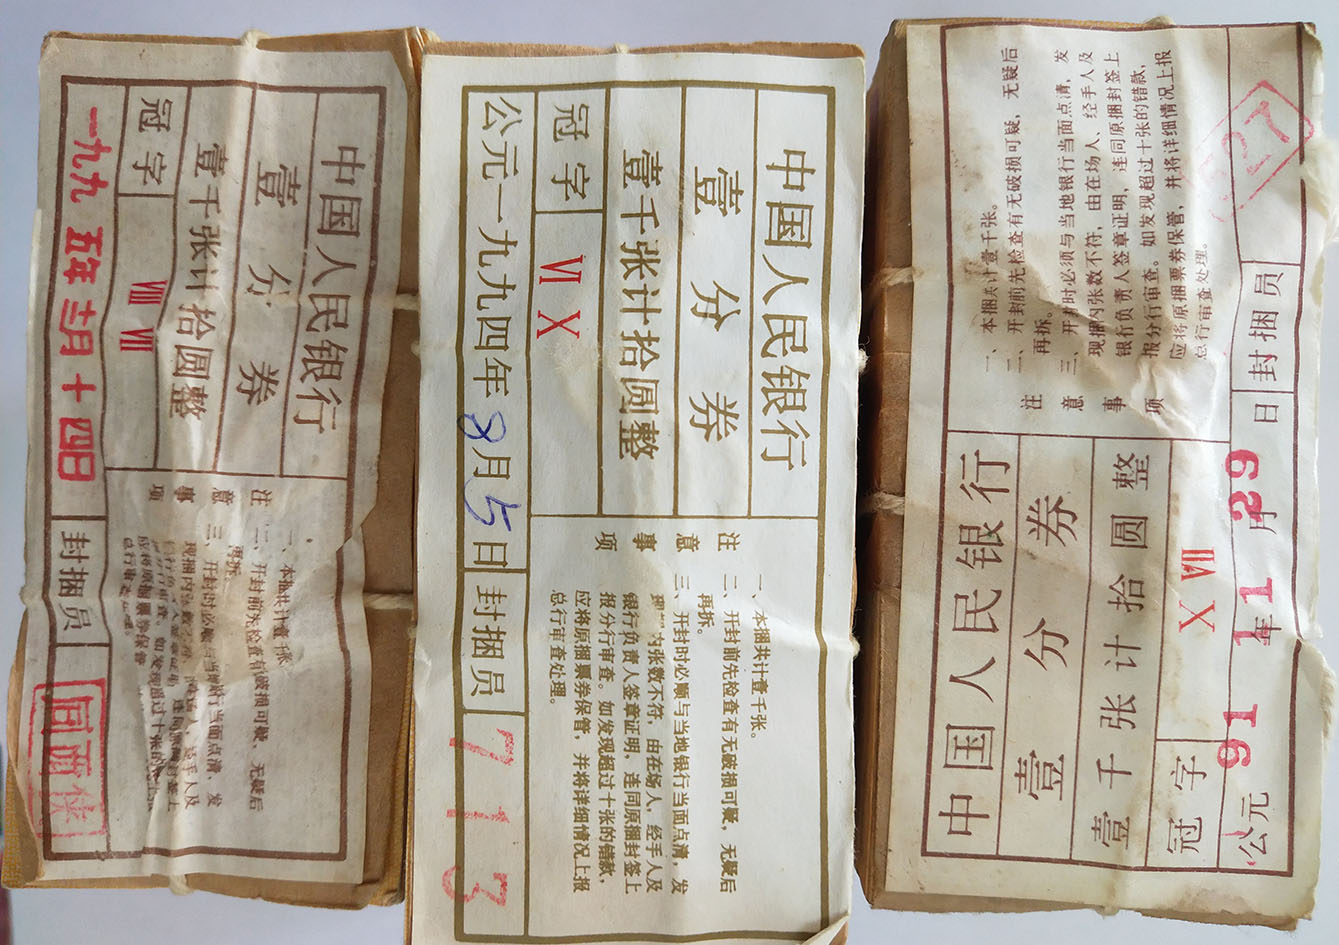 中国人民银行
壹分券
壹千张计拾圆整
冠字 VIII VII
一九九五年三月十四日 封捆员
注意事项
一、本捆共计壹千张。
二、开封前先检查有无破损可疑、无疑后
再拆。
三、开封时必顺与当地银行当面点清，发
应将原捆票券保管
中国人民银行
壹分券
壹千张计拾圆整
冠字 VI X
公元一九九四年8月5日 封捆员 713
注意事项
一、本捆共计壹千张。
二、开封前先检查有无破损可疑，无疑后
再拆。
三、开封时必顺与当地银行当面点清，发
现捆内张数不符，由在场人、经手人及
银行负责人签章证明，连同原捆封签上
报分行审查。如发现超过十张的错款，
应将原捆票券保管，并将详细情况上报
总行审查处理。
中国人民银行
壹分券
壹千张计拾圆整
冠字 X VII
公元91年11月29日 封捆员
注意事项
一、本捆共计壹千张。
二、开封前先检查有无破损可疑，无疑后
再拆。
三、开封时必须与当地银行当面点清，发
现捆内张数不符，由在场人、经手人及
银行负责人签章证明，连同原捆封签上
报分行审查。如发现超过十张的错款，
应将原捆票券保管，并将详细情况上报
总行审查处理。